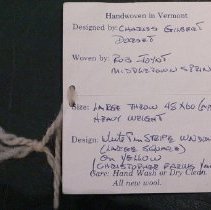 Handwoven in Vermont
Designed by: Charles Gilbert
Dorset
Woven by: Rob
Middletown Sprin
Size: Large Throw 45x60
Heavy Weight
Design: White Pin Stripe Window
(Large Square)
on Yellow
(Christopher
Care: Hand Wash or Dry Clean
All new wool.